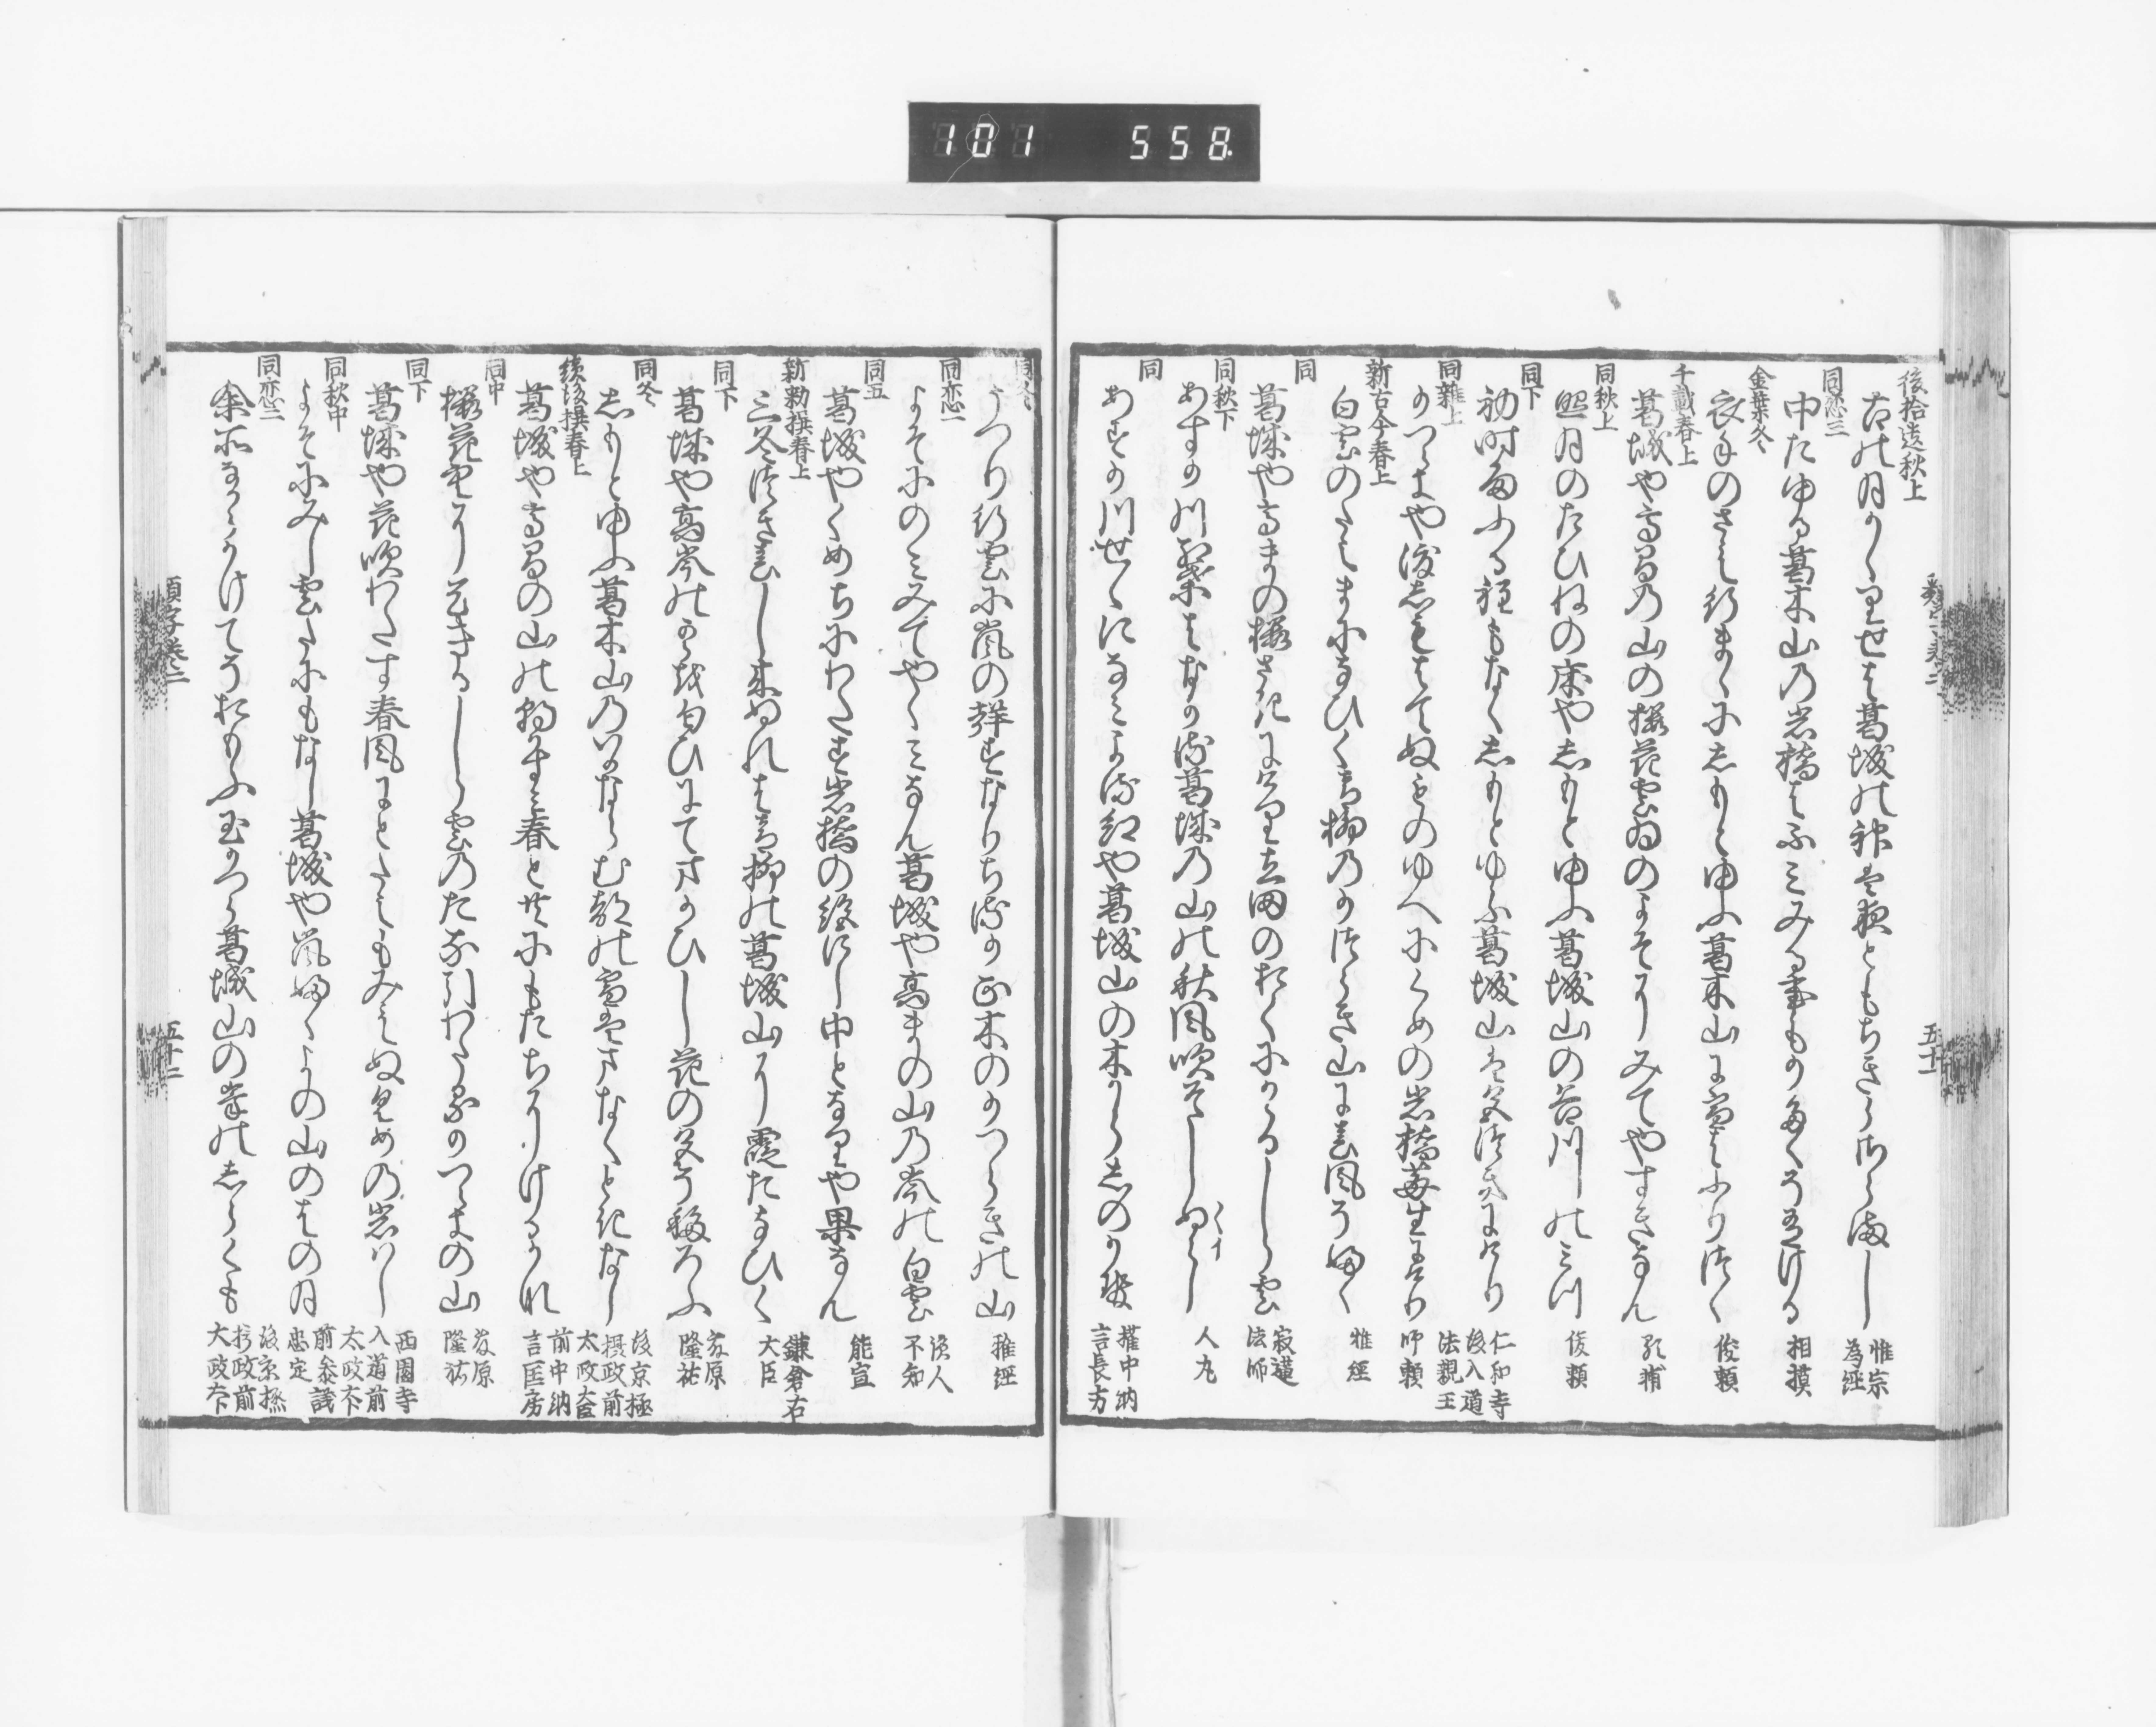 101 558
後拾遺秋上
古の月かゝりせは葛城の神は夜ともちきらさらまし
惟宗
為経
同恋三
中たゆる葛木山の岩橋はふみみる事もかたくそ有ける
相摸
金葉冬
衣手のさえ行まゝにしもとゆふ葛木山に雪はふりつゝ
俊頼
千載春上
葛城や高間の山の桜花雲ゐのよそにみてやすきなん
顕輔
同秋上
照月のたひねの床やしもとゆふ葛城山の谷川のみつ
俊頼
同下
初時雨ふる程もなくしもとゆふ葛城山は色つきにけり
仁和寺
後入道
法親王
同雑上
かつらきや渡しもはてぬものゆへにくめの岩橋苔生にけり
師頼
新古今春上
白雲のたえまになひく青柳のかつらき山に春風そ吹
雅経
同
葛城や高まの桜さきにけり立田のおくにかゝるしら雲
寂蓮
法師
同秋下
あすか川紅葉はなかる葛城の山の秋風吹そしぬらし
人丸
同
あすか川せゝになみよる紅や葛城山の木からしのかせ
権中納
言長方
五十一
同冬
うつり行雲に嵐の声すなりちるか正木のかつらきの山
雅経
同恋一
よそにのみみてやゝみなん葛城や高まの山の岑の白雲
読人
不知
同五
葛城やくめちにわたす岩橋の絶にし中となりや果なん
能宣
新勅撰春上
三冬つき春し来ぬれは青柳の葛城山に霞たなひく
鎌倉右
大臣
同下
葛城や高岑の雲を匂ひにてまかひし花の色そ移ろふ
藤原
隆祐
同冬
しもとゆふ葛木山のいかならむ都の雪もまなくときなし
後京極
摂政前
太政大臣
続後撰春上
葛城や高間の山の朝霞春と共にもたちにけるかな
前中納
言匡房
同中
桜花空にあまきるしら雲のたな引わたるかつらきの山
藤原
隆祐
同下
葛城や花吹わたす春風にとたえもみえぬくめの岩はし
西園寺
入道前
太政大臣
同秋中
よそにみし雲たにもなし葛城や嵐吹よの山のはの月
前参議
忠定
同恋二
余所なからかけてそおもふ玉かつら葛城山の峯のしらくも
後京極
摂政前
太政大臣
類字巻二
五十二